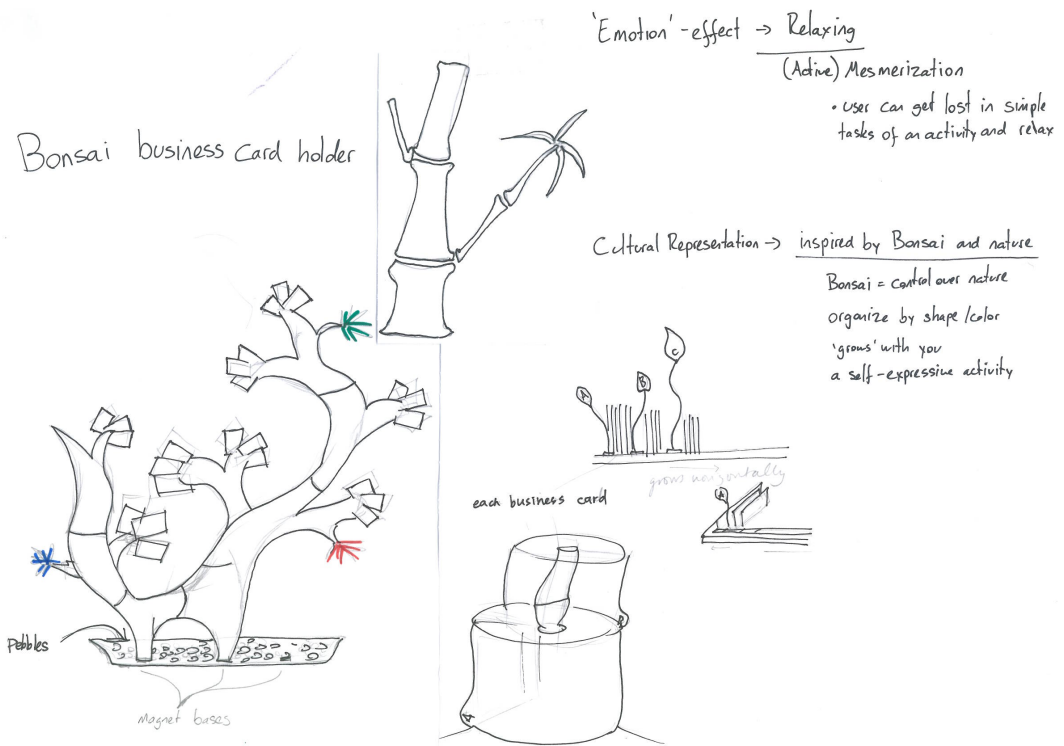 Bonsai business card holder
'Emotion'-effect → Relaxing
(Active) Mesmerization
• user can get lost in simple
tasks of an activity and relax
Cultural Representation → inspired by Bonsai and nature
Bonsai = control over nature
organize by shape/color
'grows' with you
a self-expressive activity
A
B
C
grows horizontally
A
each business card
B
A
Pebbles
Magnet bases